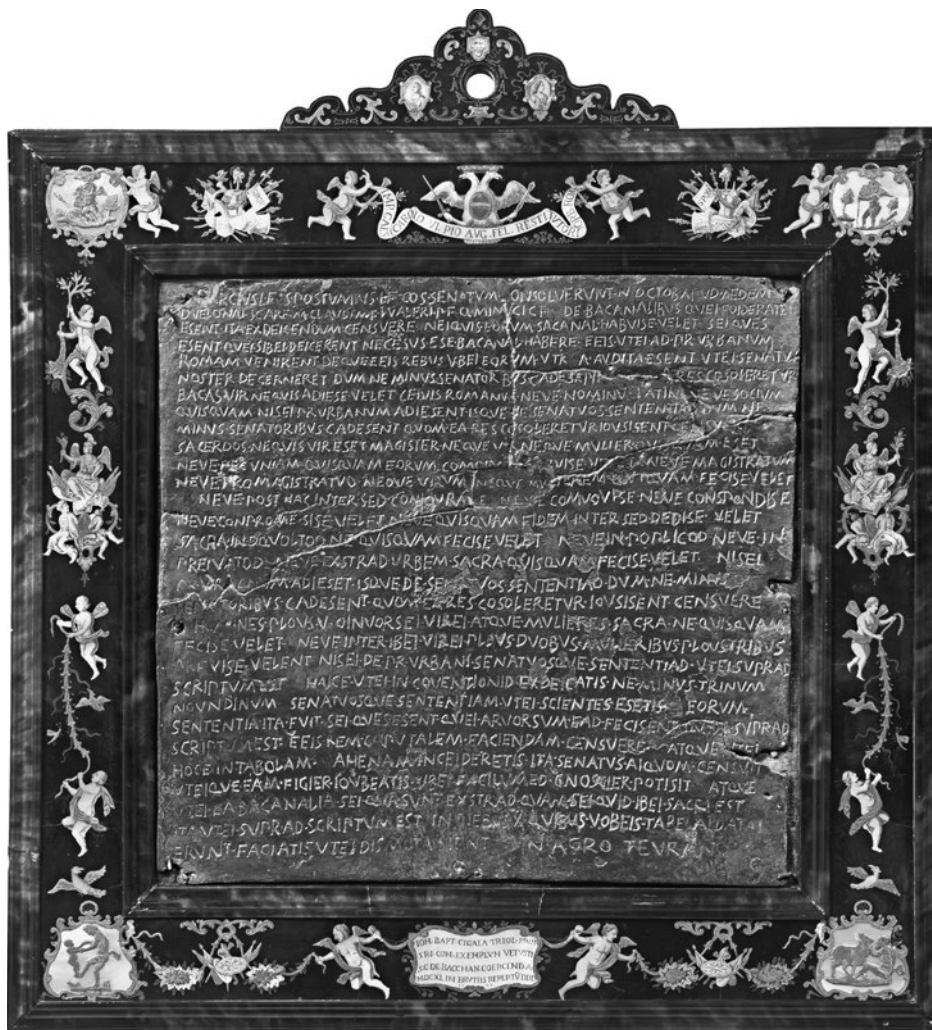 AVG CAROLO VI PIO AVG. FEL. RESTITVTORI
MARCIVS·L·F·S·POSTVMIVS·L·F·COS·SENATVM·CONSOLVERVNT·N·OCTOB·APVD·AEDEM
DVELONAI·SC·ARF·M·CLAVDI·M·F·L·VALERI·P·F·Q·MINVCI·C·F· DE·BACANALIBVS·QVEI·FOIDERATEI
ESENT·ITA·EXDEICENDVM·CENSVERE·NEIQVIS·EORVM·SACANAL·HABVISE·VELET·SEI·QVES
ESENT·QVEI·SIBEI·DEICERENT·NECESVS·ESE·BACANAL·HABERE·EEIS·VTEI·AD·PR·VRBANVM
ROMAM·VENIRENT·DEQVE·EEIS·REBVS·VBEI·EORVM·VTR·A·AVDITA·ESENT·VTEI·SENATVS
NOSTER·DECERNERET·DVM·NE·MINVS·SENATORBVS·C·ADESENT RES·COSOLERETVR
BACAS·VIR·NEQVIS·ADIESE·VELET·CEIVIS·ROMANVS·NEVE·NOMINVS·LATINI·NEVE·SOCIVM
QVISQVAM·NISEI·PR·VRBANVM·ADIESENT·ISQVE·DE·SENATVOS·SENTENTIAD·DVM·NE
MINVS·SENATORIBVS·C·ADESENT·QVOM·EA·RES·COSOLERETVR·IOVSISENT·CENSVERE
SACERDOS·NEQVIS·VIR·ESET·MAGISTER·NEQVE·VIR·NEQVE·MVLIER·QVISQVAM·ESET
NEVE·PECVNIAM·QVISQVAM·EORVM·COMOINEM·HABVISE·VELET·NEVE·MAGISTRATVM
NEVE·PRO·MAGISTRATVO·NEQVE·VIRVM·NEQVE·MVLIEREM·QVIQVAM·FECISE·VELET
NEVE·POST·HAC·INTER·SED·CONIOVRASE·NEVE·COMVOVISE·NEVE·CONSPONDISE
NEVE·CONPROMESISE·VELET·NEVE·QVISQVAM·FIDEM·INTER·SED·DEDISE·VELET
SACRA·IN·DQVOLTOD·NE·QVISQVAM·FECISE·VELET· NEVE·IN·POPLICOD·NEVE·IN
PREIVATOD·NEVE·EXSTRAD·VRBEM·SACRA·QVISQVAM·FECISE·VELET· NISEI
PR·VRBANVM·ADIESET·ISQVE·DE·SENATVOS·SENTENTIAD·DVM·NE·MINVS
SENATORIBVS·C·ADESENT·QVOM·EA·RES·COSOLERETVR·IOVSISENT·CENSVERE
HOMINES·PLOVS·V·OINVORSEI·VIREI·ATQVE·MVLIERES·SACRA·NE·QVISQVAM
FECISE·VELET·NEVE·INTER·IBEI·VIREI·PLOVS·DVOBVS·MVLIERIBVS·PLOVS·TRIBVS
ARFVISE·VELENT·NISEI·DE·PR·VRBANI·SENATVOSQVE·SENTENTIAD·VTEI·SVPRAD
SCRIPTVM·EST HAICE·VTEI·IN·COVENTIONID·EXDEICATIS·NE·MINVS·TRINVM
NOVNDINVM SENATVOSQVE·SENTENTIAM·VTEI·SCIENTES·ESETIS EORVM
SENTENTIA·ITA·FVIT·SEI·QVES·ESENT·QVEI·ARVORSVM·EAD·FECISENT·QVAM·SVPRAD
SCRIPTVM·EST·EEIS·REM·CAPVTALEM·FACIENDAM·CENSVERE ATQVE·VTEI
HOCE·IN·TABOLAM· AHENAM·INCEIDERETIS·ITA·SENATVS·AIQVOM·CENSVIT
VTEIQVE·EAM·FIGIER·IOVBEATIS·VBEI·FACILVMED·GNOSCIER·POTISIT ATQVE
VTEI·EA·BACANALIA·SEI·QVA·SVNT·EXSTRAD·QVAM·SEI·QVID·IBEI·SACRI·EST
ITA·VTEI·SVPRAD·SCRIPTVM·EST·IN·DIEBVS·X·QVIBVS·VOBEIS·TABELAI·DATAI
ERVNT·FACIATIS·VTEI·DISMOTA·SIENT IN·AGRO·TEVRANO
IOH·BAPT·CIGALA·TRIOL·PRIN
TIRI·COM·EXEMPLVM·VETVSTI
S·C·DE·BACCHAN·COERCEND·A
MDCXL·IN·BRVTIIS·REPERTV̄·DEDIT